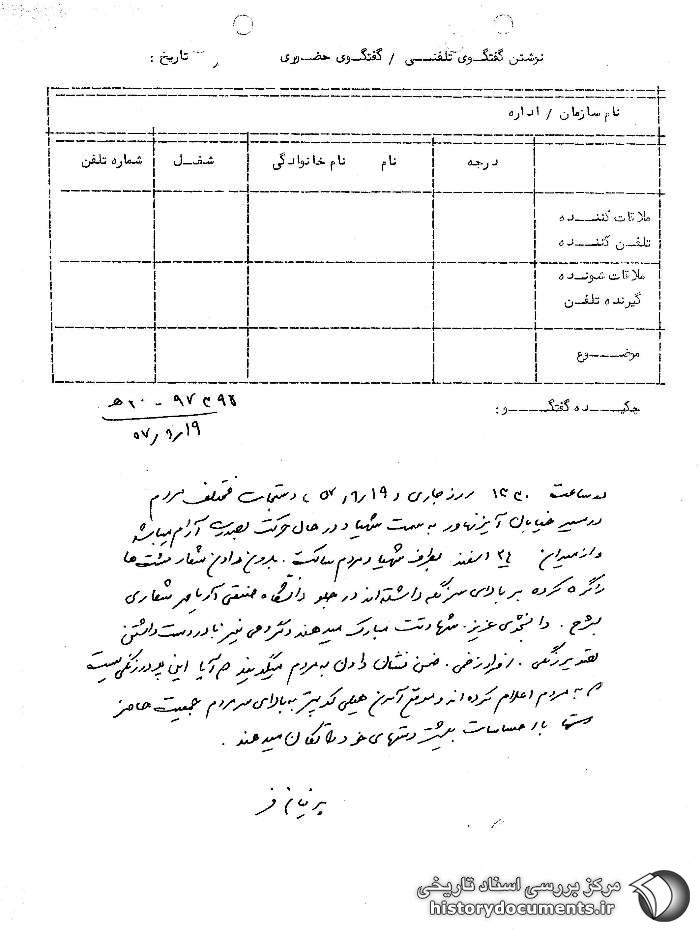 نوشتن گفتگوی تلفنی / گفتگوی حضوری تاریخ :
نام سازمان / اداره
درجه نام نام خانوادگی شغل شماره تلفن
ملاقات کننده
تلفن کننده
ملاقات شونده
گیرنده تلفن
موضوع
چکیده گفتگو :
۲۰ هـ -
۵۷٫۹٫۱۹
در ساعت ۱۳۳۰ روز جاری ۵۷٫۹٫۱۹ دستجات مختلف مردم
در مسیر خیابان آیزنهاور به سمت شهیاد در حال حرکت بصورت آرام میباشد
و از میدان ۲۴ اسفند بطرف شهیاد مردم ساکت. بدون دادن شعار مشت ها
را گره کرده بر بالای سر نگه داشته اند در جلو دانشگاه صنعتی آریامهر شعاری
بشرح. دانشجوی عزیز. شهادتت مبارک میدهند و گروهی نیز با در دست داشتن
ضمن نشان دادن به مردم میگویند آیا این
به مردم اعلام کرده اند و موقع آمدن هلی کوپتر به بالای سر مردم جمعیت حاضر
با احساسات بیشتر دستهای خود را تکان میدهند.
مرکز بررسی اسناد تاریخی
historydocuments.ir